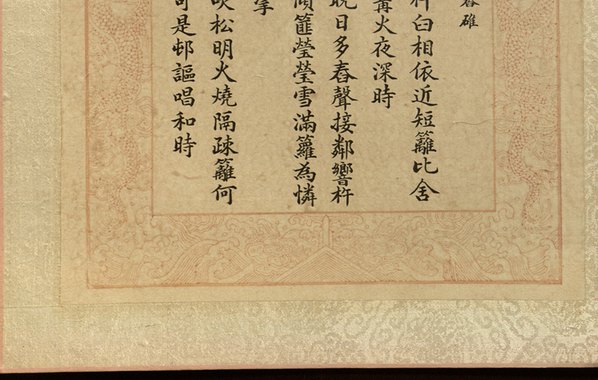 碓
臼相依近短籬比舍
火夜深時
晚日多舂聲接鄰響杵
篚瑩瑩雪滿籮為憐
松明火燒隔疎籬何
是邨謳唱和時